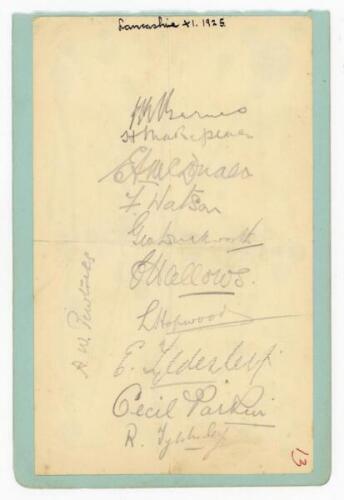 Lancashire XI. 1925.
J R Barnes
H Makepeace
E A McDonald
F. Watson
Geo Duckworth
C Hallows.
L Hopwood
E. Tyldesley
Cecil Parkin
R. Tyldesley
A. W. Pewtress
13